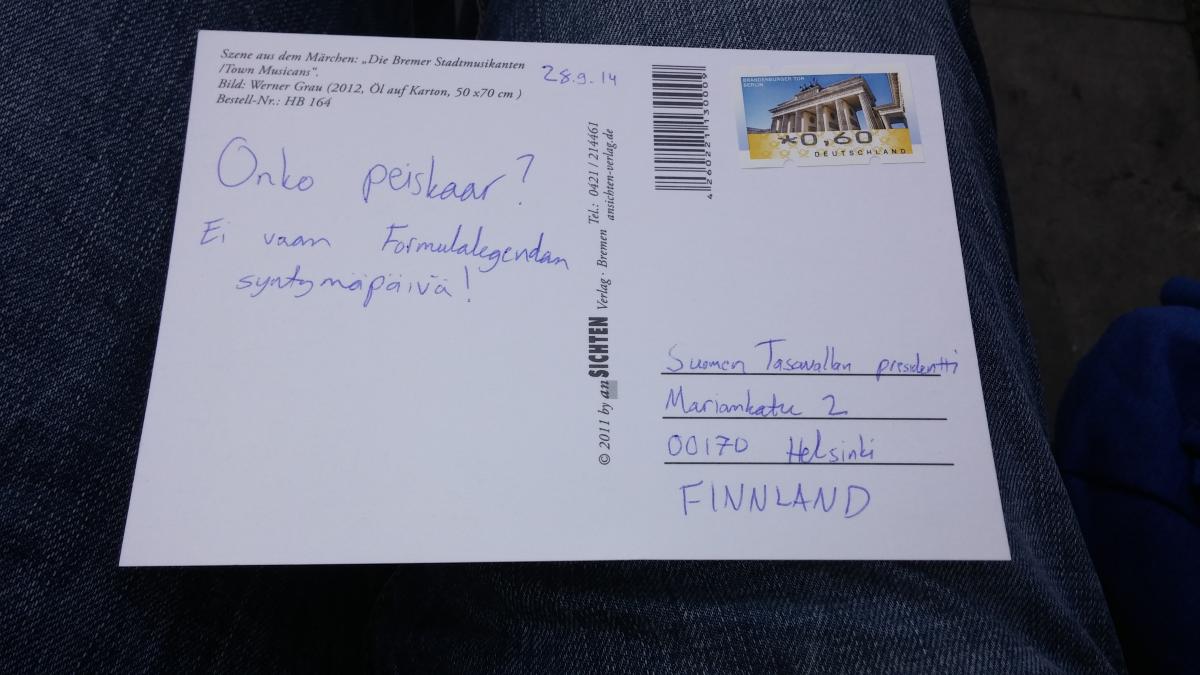 Szene aus dem Märchen: „Die Bremer Stadtmusikanten
/Town Musicans“.
Bild: Werner Grau (2012, Öl auf Karton, 50 x70 cm )
Bestell-Nr.: HB 164
28.9.14
Onko peiskaar?
Ei vaan Formulalegendan
syntymäpäivä!
© 2011 by anSICHTEN Verlag · Bremen Tel.: 0421 / 214461
ansichten-verlag.de
4260221130009
BRANDENBURGER TOR
BERLIN
*0,60
DEUTSCHLAND
Suomen Tasavallan presidentti
Mariankatu 2
00170 Helsinki
FINNLAND